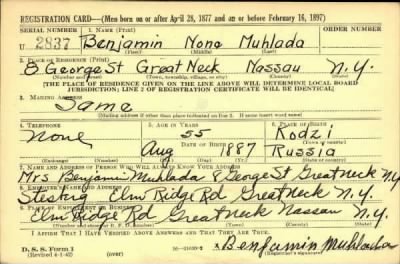 REGISTRATION CARD—(Men born on or after April 28, 1877 and on or before February 16, 1897)
SERIAL NUMBER 1. NAME (Print) ORDER NUMBER
U 2837 Benjamin None Muhlada
(First) (Middle) (Last)
2. PLACE OF RESIDENCE (Print)
8 George St Great Neck Nassau N.Y.
(Number and street) (Town, township, village, or city) (County) (State)
[THE PLACE OF RESIDENCE GIVEN ON THE LINE ABOVE WILL DETERMINE LOCAL BOARD
JURISDICTION; LINE 2 OF REGISTRATION CERTIFICATE WILL BE IDENTICAL]
3. MAILING ADDRESS
Same
[Mailing address if other than place indicated on line 2. If same insert word same]
4. TELEPHONE 5. AGE IN YEARS 6. PLACE OF BIRTH
None 55 Kodzi
DATE OF BIRTH (Town or county)
Aug 1887 Russia
(Mo.) (Day) (Yr.) (State or country)
7. NAME AND ADDRESS OF PERSON WHO WILL ALWAYS KNOW YOUR ADDRESS
Mrs Benjamin Muhlada 8 George St Great Neck N.Y.
8. EMPLOYER'S NAME AND ADDRESS
Elm Ridge Rd Great Neck N.Y.
9. PLACE OF EMPLOYMENT OR BUSINESS
Elm Ridge Rd Great Neck Nassau N.Y.
I AFFIRM THAT I HAVE VERIFIED ABOVE ANSWERS AND THAT THEY ARE TRUE.
D. S. S. Form 1
(Revised 4-1-42) (over) Benjamin Muhlada